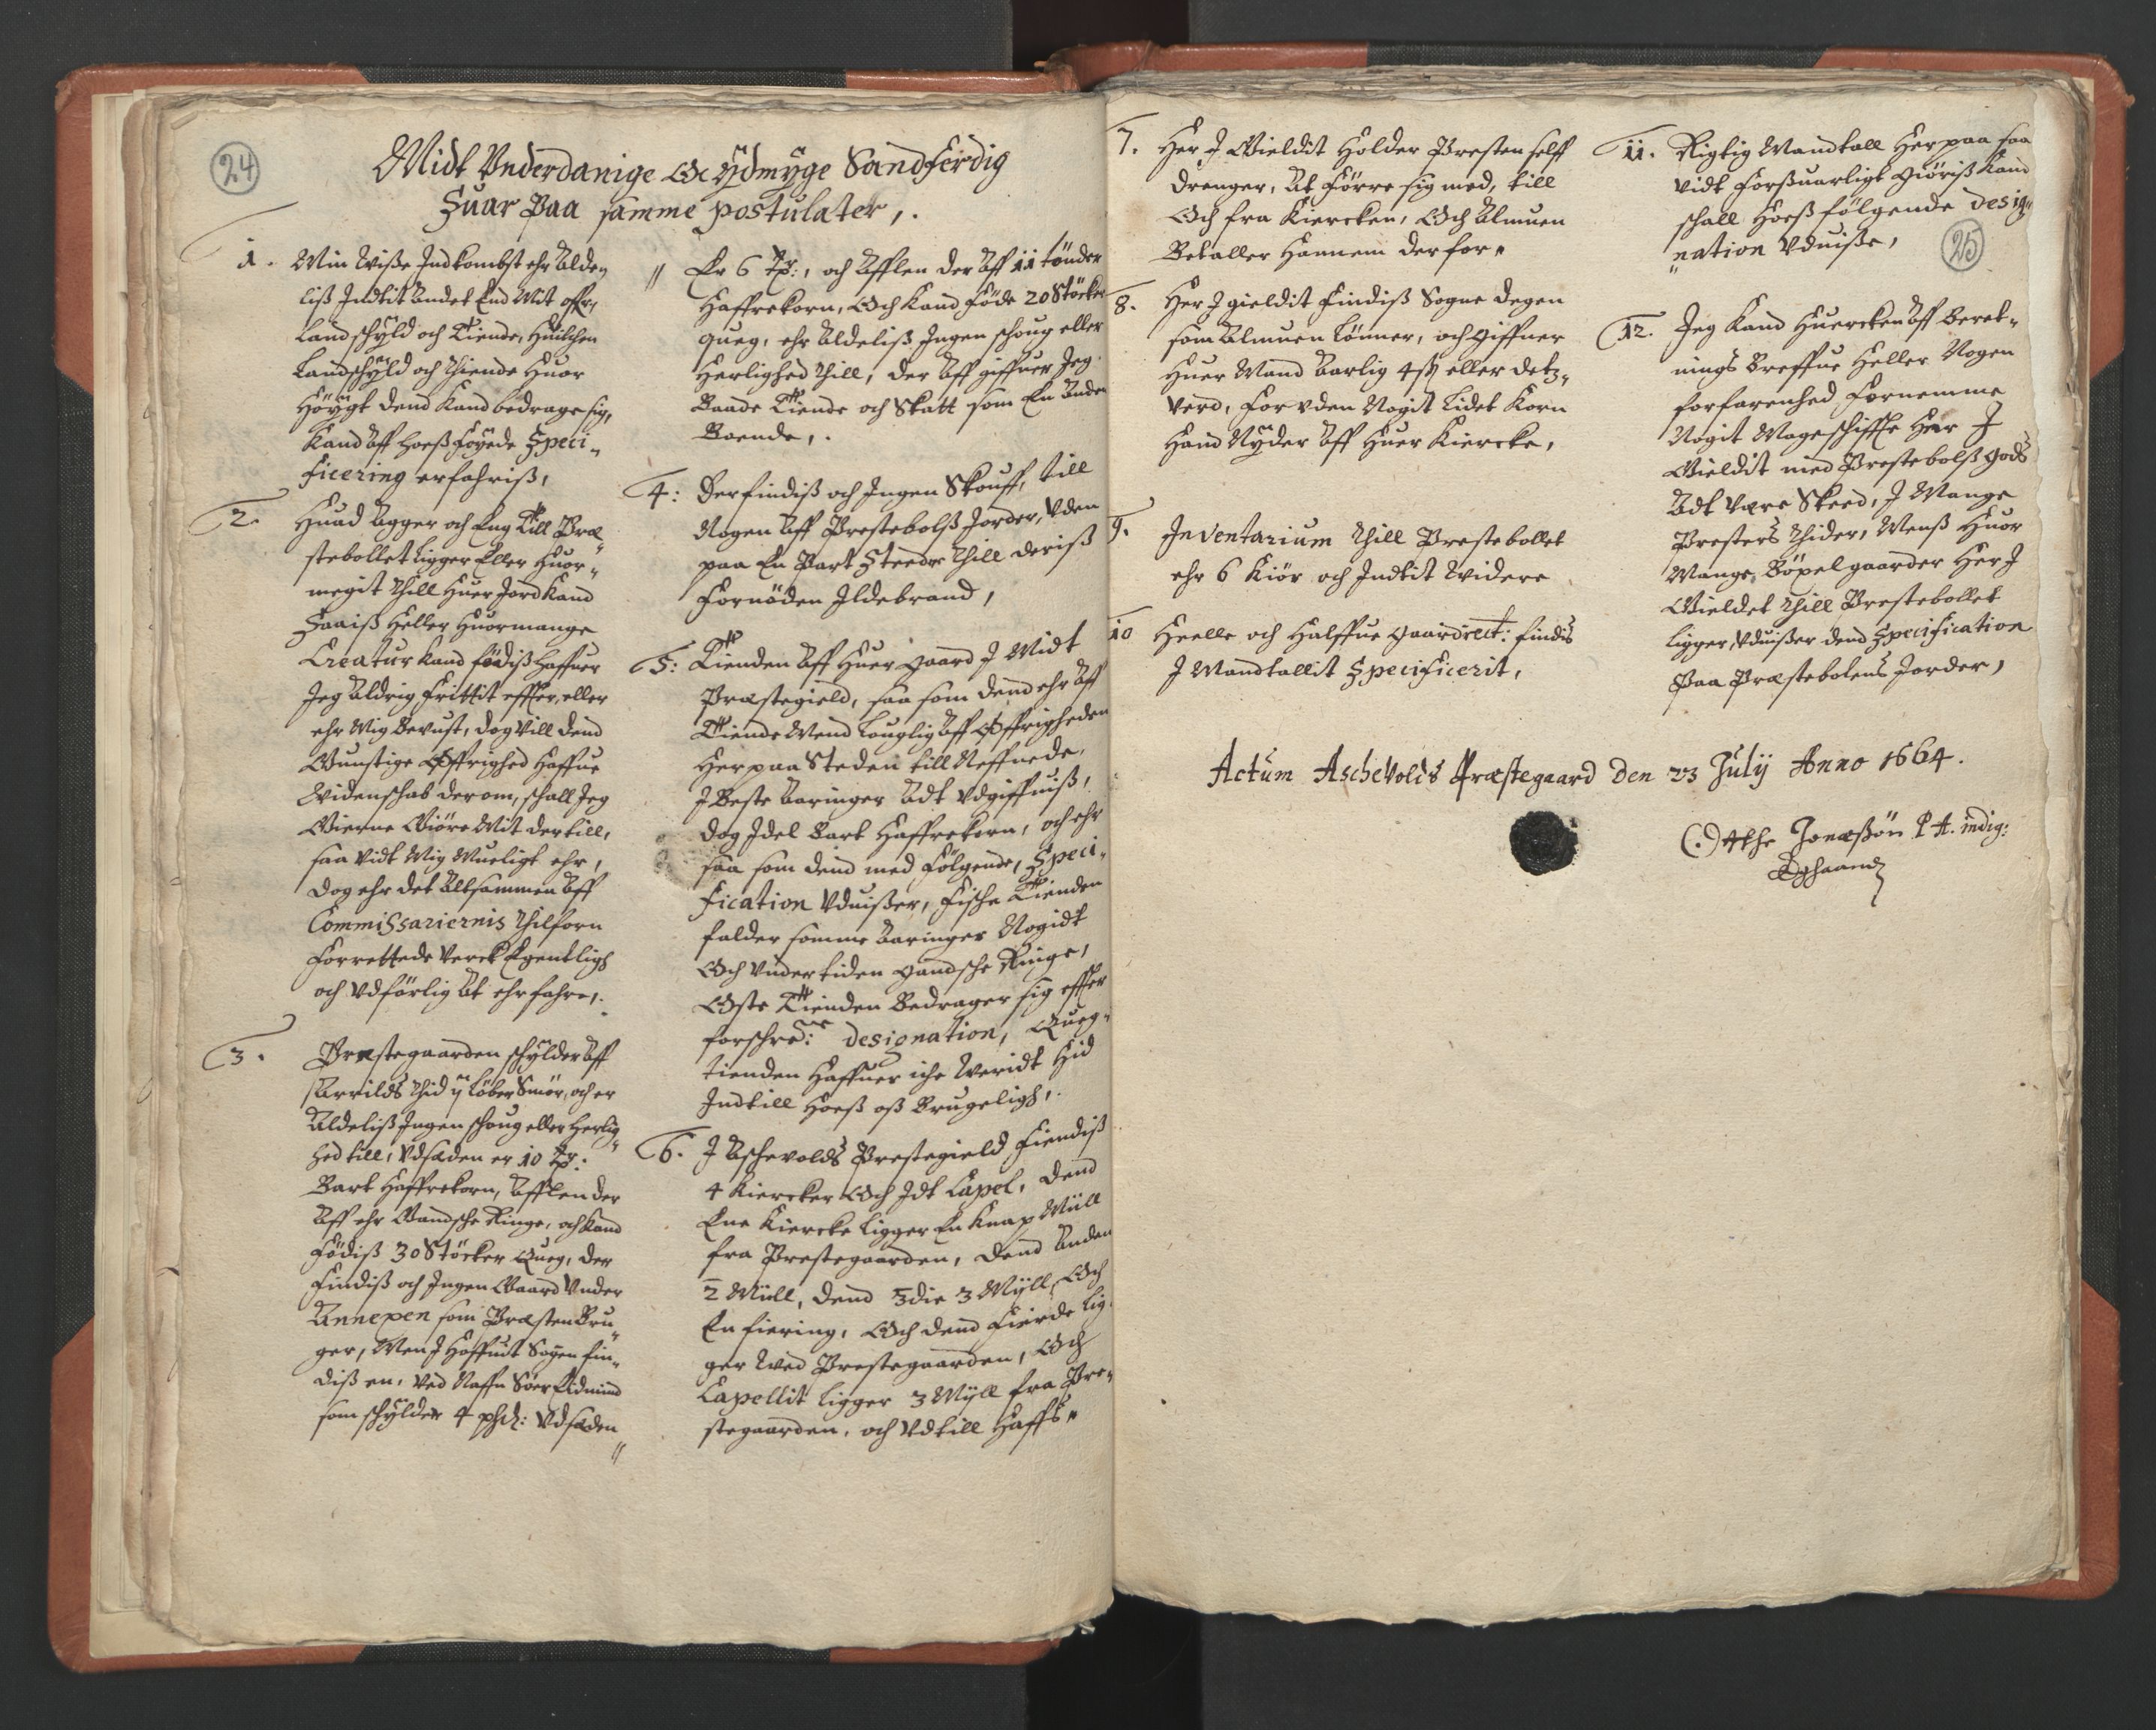 24
Midt Vnderdanige Oc ÿdmÿge Sandferdig
Suar Paa samme postulater,.
1. Min Wiße Indkombst ehr Alde,,
liß Indtit Andet End Mit offr,
Landschÿld och Tiende, Huilchen
Landschÿld och Thiende Huor
Höÿgt dend Kand bedrage sig,
Kand Aff Hoeß Föÿede Speci,,
ficering erfahriß,
2. Huad Agger och Eng Till Præ,,
stebollet Ligger Eller Huor,,
megit Thill Huer Jord Kand
Saaiß Heller Huormange
Creatur Kand födiß Haffuer
Jeg Aldrig Frittit effter, eller
ehr Mig Bevust, dog Vill dend
Gunstige Øffrighed Haffue
Videnschab der om, schall Jeg
Gierne Giöre Mit der till,
saa Vidt Mig Mueligt ehr,
dog ehr det Altsammen Aff
Commissariernis Thilforn
Forrettede Verck Egentligh
och Vdförlig At ehrfahre,.
3. Præstegaarden schÿlder Aff
Arrilds Thid ij Löber Smör, och er
Aldeliß Ingen schoug eller Herlig,,
hed till, Vdsæden er 10 Tr:
Bart Haffrekorn, Afflen der
Aff ehr Gandsche Ringe, och Kand
Födiß 30 Støcker Queg, der
Findiß och Ingen Gaard Vnder
Annexen som Præsten Bru,,
ger, Men I Hoffuit Sogen fin,,
diß en, Ved Naffn
som schÿlder 4 Vdsæden
,,
,, Er 6 Tr:, och Afflen der Aff 11 tönder
Haffrekorn, Och Kand Föde 20 Støcker
queg, ehr Aldeliß Ingen schoug eller
Herlighed Thill, der Aff giffuer Jeg
Baade Tiende och Skatt som En Anden
Bonde,.
4: Der findiß och Ingen Skouff, till
Nogen Aff Prestebolß Jorder, Vden
paa En Part Steeder Thill deriß
Fornöden Ildebrand,
5: Tienden Aff Huer gaard I Midt
Præstegield, saa som dend ehr Aff
Tiende Mend Louglig Aff Øffrigheden
Her paa Steden till Neffnede,
I Beste Aaringer Adt Vdgiffuiß,
dog Idel Bart Haffrekorn, och ehr
saa som dend med Følgende, Speci,,
fication Vduißer, Fische Tienden
falder somme Aaringer Nogidt
Och Vndertiden gandsche Ringe,
Oste Tienden Bedrager sig effter
forschre: designation, Queg,,
tienden Haffuer iche Veridt Hid
Indtill Hoeß oß Brugeligh,.
6. I Aschevolds Prestegield Fiendiß
4 Kiercker Och Idt Capel, Dend
Ene Kiercke Ligger En Knap Müll
fra Prestegaarden, Dend Anden
2 Müll, Dend 3die 3 Mÿll Och
En fiering, Och dend Fierde Lig,,
ger Ved Prestegaarden, Och
Capellit ligger 3 Mÿll fra Pre,,
stegaarden, och Vdtill Haffs,,
7. Her I Gieldit Holder Presten self
Drenger, At Förre sig med, till
Och fra Kiercken, Och Almuen
Betaller Hannem der for,,
8. Her I gieldit Findiß Sogne Degen
som Almuen Lönner, och giffuer
Huer Mand Aarlig 4 ß eller detz,,
Verd, For vden Nogit Lidet Korn
Hand Nÿder Aff Huer Kiercke,
9. Inventarium Thill Prestebollet
ehr 6 Kiör och Indtit Videre
10 Heelle och Halffue gaarder etc: findis
I Mandtallit Specificerit,
11. Rigtig Mandtall Her paa saa
vidt Forßuarligt Giöriß Kand
schall Hoeß følgende desig,,
,,nation Vduiße,
25
12. Jeg Kand Huercken Aff Beret,,
nings Breffue Heller Nogen
forfarenhed Fornemme
Nogit Mageschiffte Her I
Gieldit med Prestebolß gods
Adt Være Skeed, I Mange
Presters Thider, Menß Huor
Mange Böxelgaarder Her I
Gieldet Thill Prestebollet
Ligger, Vduißer dend Specification
Paa Præstebolens Jorder,
Actum Aschevolds Præstegaard Den 23 Julij Anno 1664.
Otthe Jonæßön P A. indig:
Eghaand